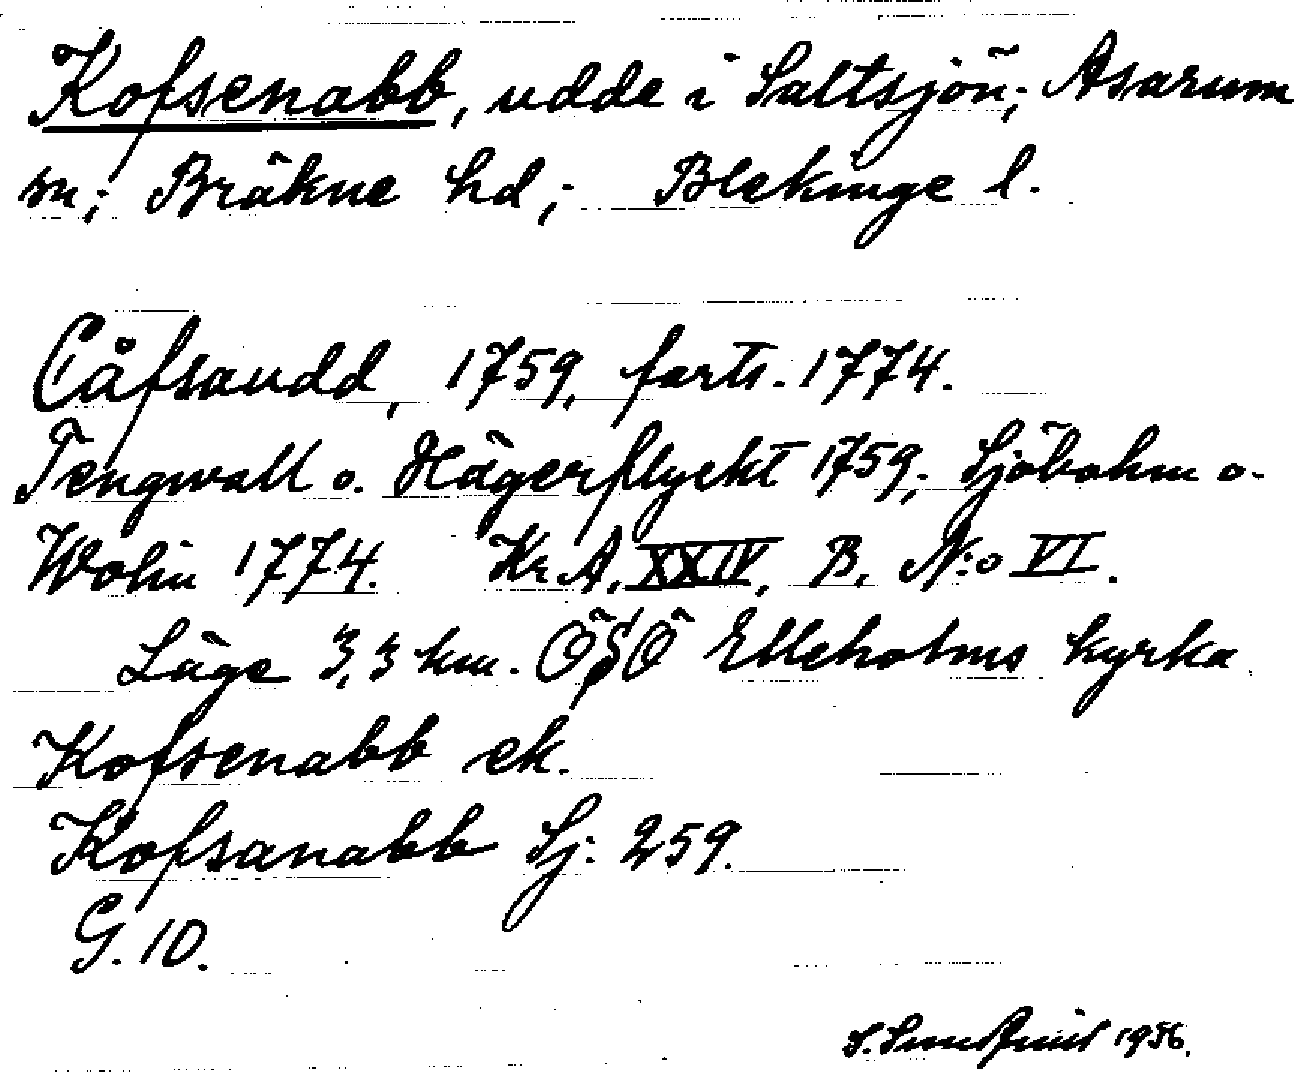 Kofsenabb, udde i Saltsjön; Asarum
sn; Bräkne hd; Blekinge l.
Cåfsaudd, 1759, forts. 1774.
Tengwall o. Hägerflycht 1759; Sjöbohm o.
Wolin 1774. Kr. A. XXIV, B. N:o VI.
Läge 3,3 km. ÖSÖ Elleholms kyrka
Kofsenabb ek.
Kofsanabb Sj: 259.
G. 10.
1956.